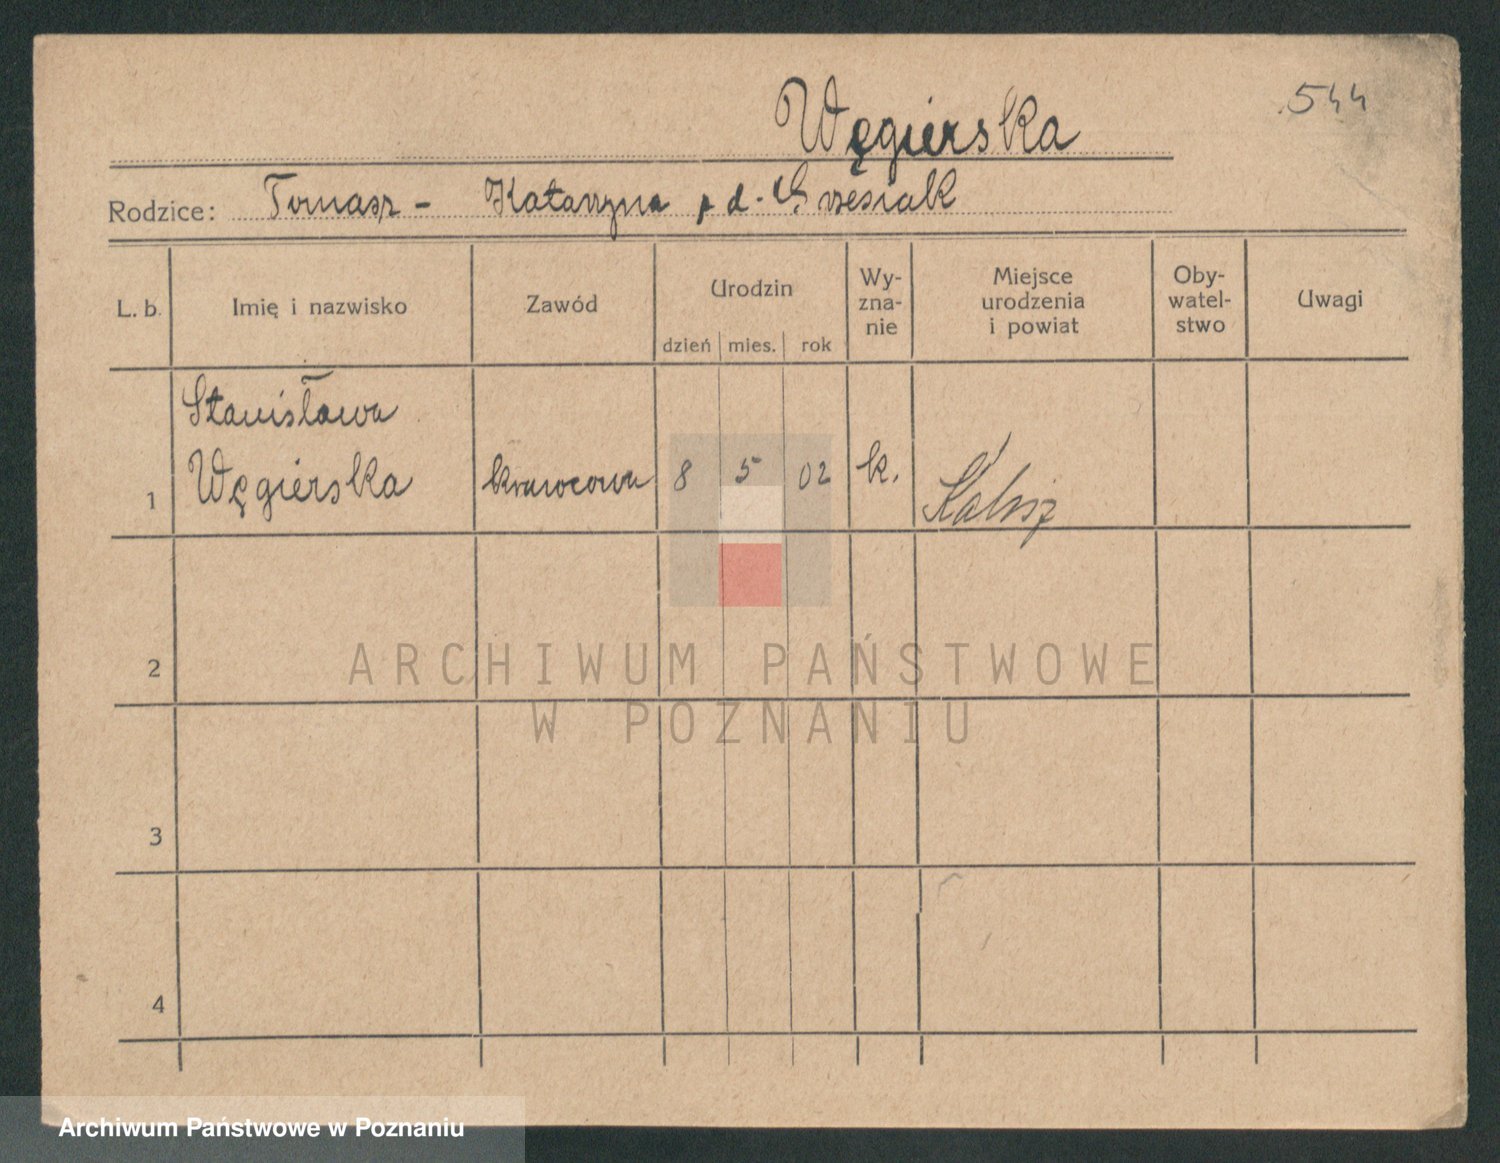 Węgierska
544
Rodzice: Tomasz - Katarzyna z d. Grzesiak
L. b. Imię i nazwisko Zawód Urodzin Wy-zna-nie Miejsce urodzenia i powiat Oby-watel-stwo Uwagi
dzień mies. rok
Stanisława
1 Węgierska krawcowa 8 5 02 k. Kalisz
2
ARCHIWUM PAŃSTWOWE
W POZNANIU
3
4
Archiwum Państwowe w Poznaniu